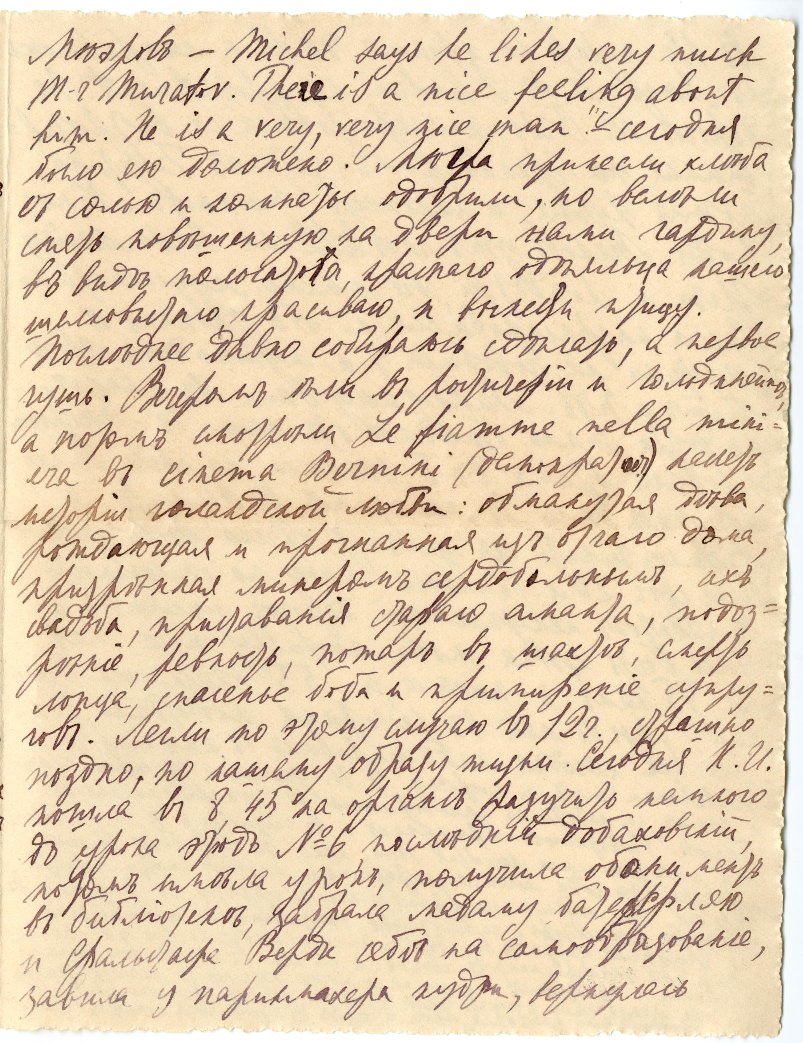 Мюэровъ — Michel says he likes very much
M-r Muratov. There is a nice feeling about
him. He is a very, very nice man" – сегодня
было ею доложено. Мюэра принесли хлѣба
съ солью и комнаты одобрили, но велѣли
снять повѣшенную на двери нами гардину,
въ видѣ полосатаго, краснаго одѣяльца нашего
шелковистаго, красиваго, и вынести птицу.
Послѣднее давно собираюсь сдѣлать, а первое
чушь. Вечеромъ были въ ростичеріи и
а потомъ смотрѣли Le fiamme nella mini-
era въ cinema Bernini (демократ.)
исторія голандской любви: обманутая дѣва,
рождающая и прогнанная изъ отчаго дома,
призрѣнная минеромъ сердобольнымъ, ихъ
свадьба, приставанія стараго аманта, подоз-
рѣніе, ревность, пожаръ въ шахтѣ, смерть
лопца, спасенье боба и примиреніе супру-
говъ. Легли по этому случаю въ 12 г., страшно
поздно, по нашему образу жизни. Сегодня К. И.
пошла въ 8,45 на органъ разучить немного
до урока этюдъ № 6, послѣдній добаховскій,
потомъ имѣла урокъ, получила абониментъ
въ библіотекѣ, забрала мадаму Батерфляю
и Фальстафа Верди себѣ на самообразованіе,
завила у парикмахера кудри, вернулась